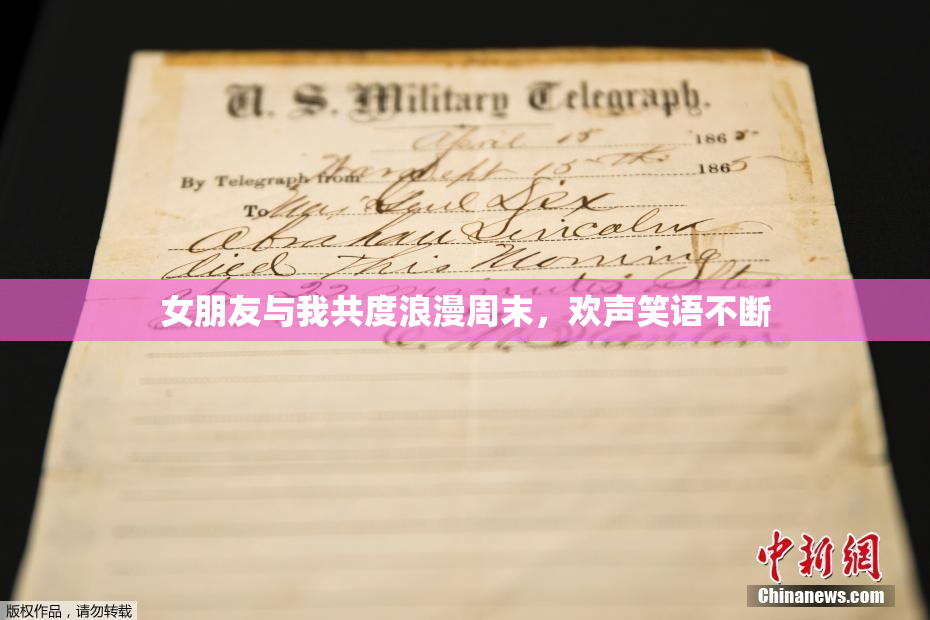 U. S. Military Telegraph.
April 15 1865
By Telegraph from War Dept 15th 1865
To Maj Genl Dix
Abraham Lincoln
died This Morning
at 22 minutes after
女朋友与我共度浪漫周末，欢声笑语不断
E. M. Stanton
中新网
Chinanews.com
版权作品，请勿转载